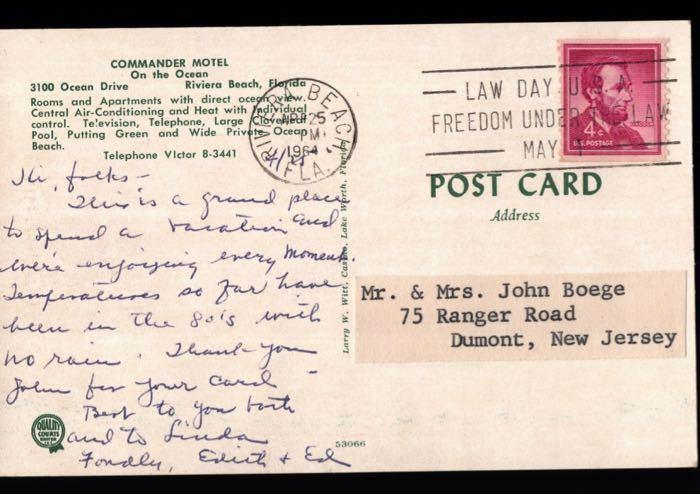 COMMANDER MOTEL
On the Ocean
3100 Ocean Drive Riviera Beach, Florida
Rooms and Apartments with direct ocean view.
Central Air-Conditioning and Heat with Individual
control. Television, Telephone, Large Cloverleaf
Pool, Putting Green and Wide Private Ocean
Beach.
Telephone VIctor 8-3441
RIVIERA BEACH, FLA.
APR 25
PM
1964
LAW DAY U.S.A.
FREEDOM UNDER THE LAW
MAY 1
4¢
U.S. POSTAGE
POST CARD
Address
4/25
Hi, folks -
This is a grand place
to spend a vacation and
we're enjoying every moment.
Temperatures so far have
been in the 80's with
no rain. Thank you
John for your card -
Best to you both
and to Linda
Fondly, Edith & Ed
Larry W. Witt, Lake Worth, Florida
Mr. & Mrs. John Boege
75 Ranger Road
Dumont, New Jersey
QUALITY
COURTS
53066